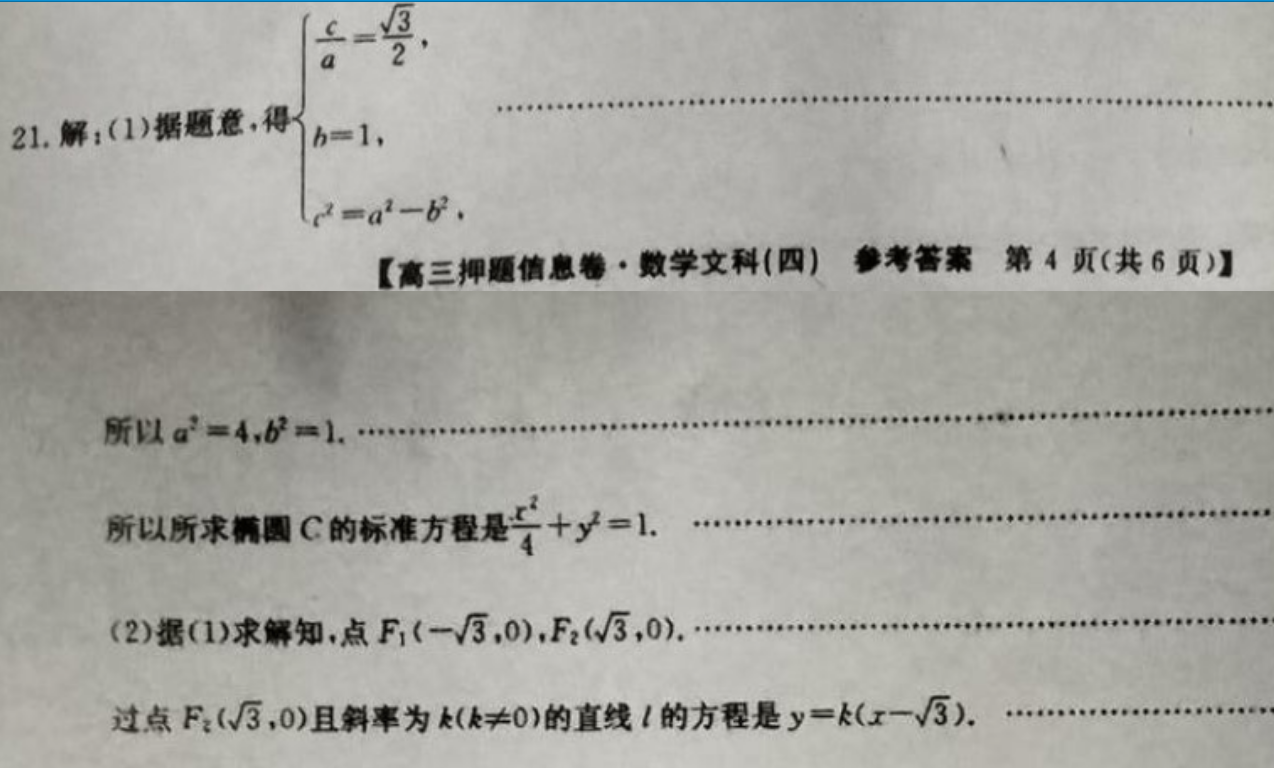 21. 解:(1)据题意,得{c/a=√3/2,
b=1,
c²=a²-b²,
【高三押题信息卷·数学文科(四) 参考答案 第 4 页(共 6 页)】
所以 a²=4,b²=1.
所以所求椭圆 C 的标准方程是x²/4+y²=1.
(2)据(1)求解知,点 F₁(-√3,0),F₂(√3,0).
过点 F₂(√3,0)且斜率为 k(k≠0)的直线 l 的方程是 y=k(x-√3).